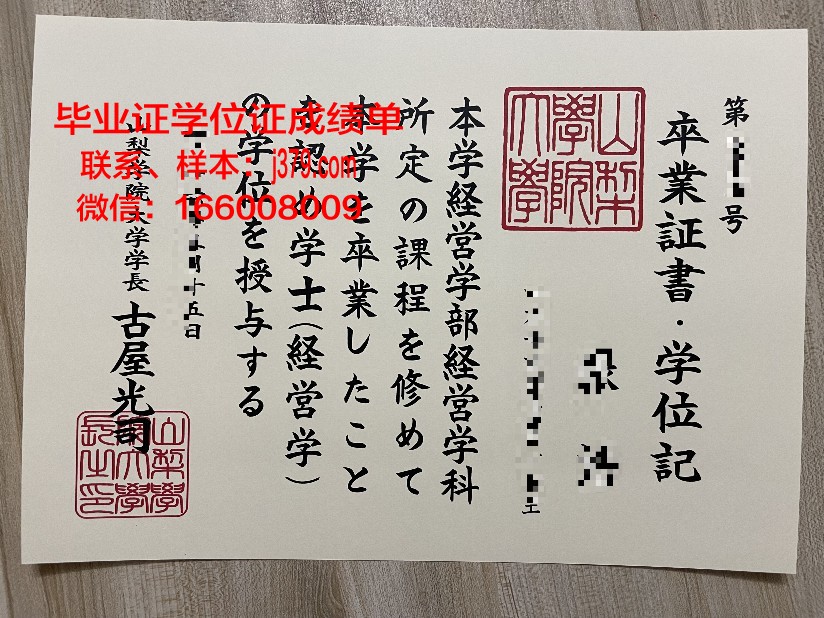 第 号
卒業証書・学位記
山梨
學院
大學
本学経営学部経営学科
所定の課程を修めて
本学を卒業したこと
を認め学士(経営学)
の学位を授与する
月十五日
山梨学院大学学長 古屋光司
山梨學
院大學
長之印
毕业证学位证成绩单
联系、样本:j379.com
微信:166008009